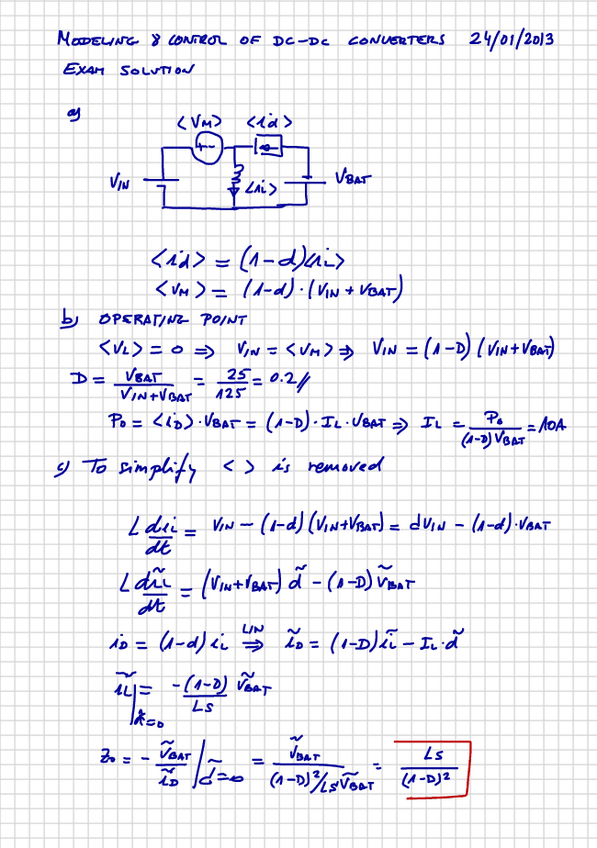 MODELING & CONTROL OF DC-DC CONVERTERS 24/01/2013
EXAM SOLUTION
a)
<VM> <id>
VIN <iL> VBAT
<id> = (1-d)<iL>
<VM> = (1-d)·(VIN+VBAT)
b) OPERATING POINT
<VL> = 0 ⇒ VIN = <VM> ⇒ VIN = (1-D)(VIN+VBAT)
D = VBAT/(VIN+VBAT) = 25/125 = 0.2//
Po = <iD>·VBAT = (1-D)·IL·VBAT ⇒ IL = Po/((1-D)VBAT) = 10A
c) To simplify < > is removed
L diL/dt = VIN - (1-d)(VIN+VBAT) = dVIN - (1-d)·VBAT
L dĩL/dt = (VIN+VBAT) d̃ - (1-D) ṽBAT
iD = (1-d) iL LIN ⇒ ĩD = (1-D)ĩL - IL·d̃
ĩL|d̃=0 = -(1-D)/Ls ṽBAT
Zo = - ṽBAT/ĩD |d̃=0 = ṽBAT/((1-D)²/Ls ṽBAT) = Ls/(1-D)²